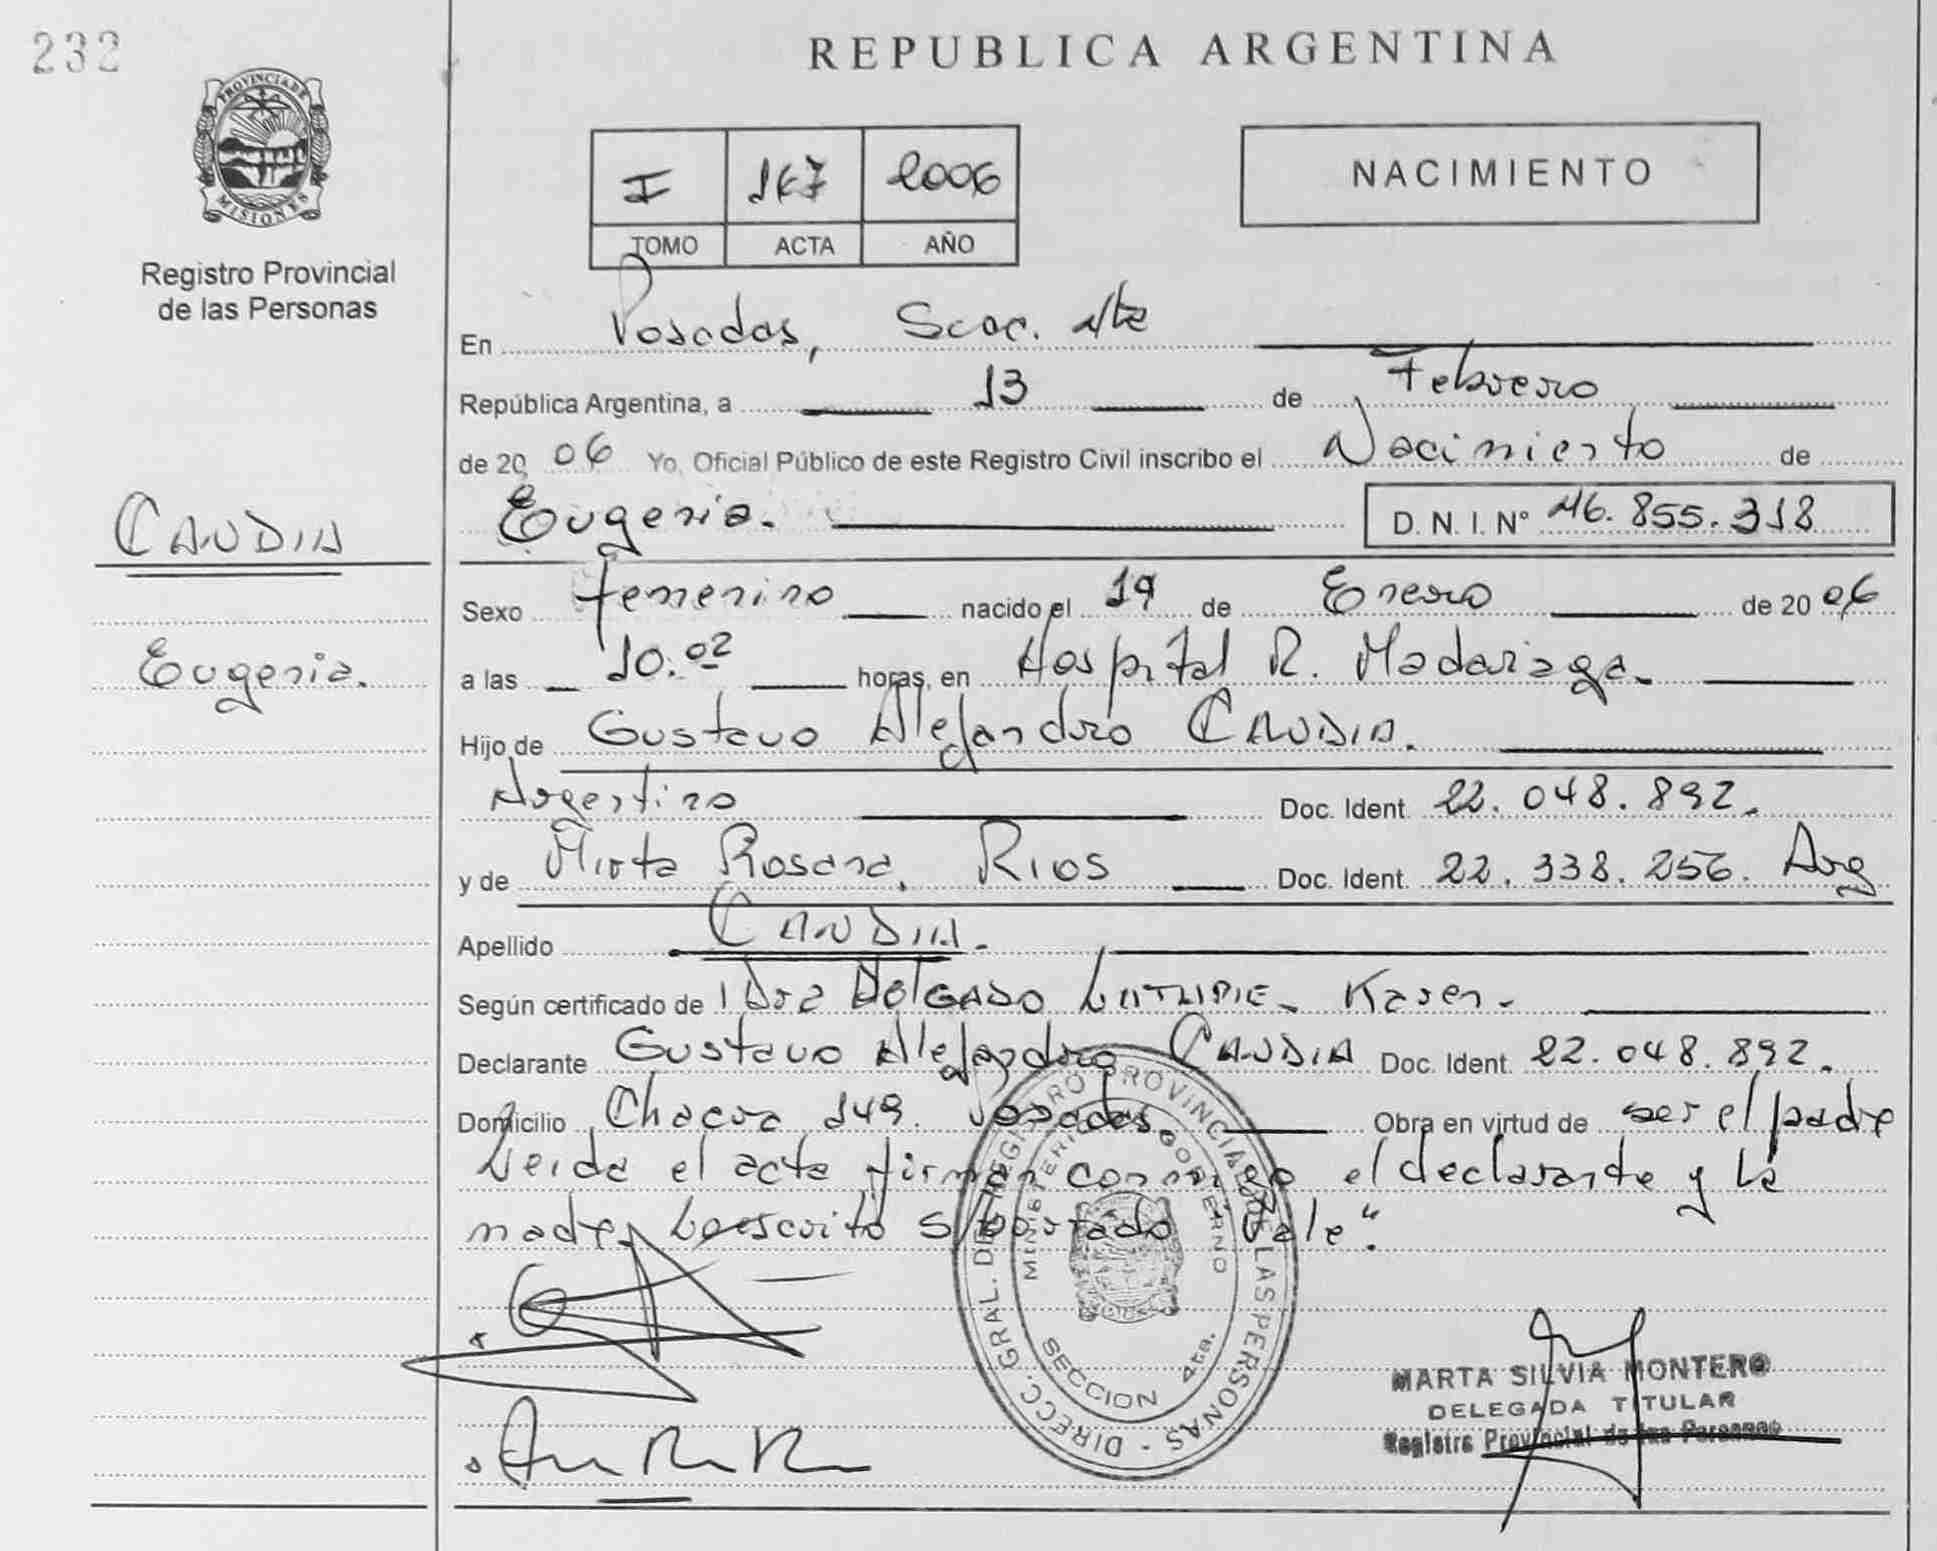 232
REPUBLICA ARGENTINA
PROVINCIA DE
MISIONES
Registro Provincial
de las Personas
I 167 2006
TOMO ACTA AÑO
NACIMIENTO
En Posadas, Secc. 4ta
República Argentina, a 13 de Febrero
de 2006 Yo, Oficial Público de este Registro Civil inscribo el Nacimiento de
Eugenia. D. N. I. Nº 46.855.318
CAUDIA
Sexo femenino nacido el 19 de Enero de 2006
Eugenia.
a las 10.02 horas, en Hospital R. Madariaga.
Hijo de Gustavo Alejandro CAUDIA.
Argentino Doc. Ident. 22.048.892.
y de Mirta Rosana. RIOS Doc. Ident. 22.338.256. Arg
Apellido CAUDIA.
Según certificado de Dra DELGADO Karen.
Declarante Gustavo Alejandro CAUDIA Doc. Ident. 22.048.892.
Domicilio Chacra 149. Posadas. Obra en virtud de ser el padre
Leida el acta firman conmigo el declarante y la
madre, Lo escrito s/portado "Vale".
DIRECC. GRAL. DEL REGISTRO PROVINCIAL DE LAS PERSONAS -
MINISTERIO GOBIERNO
SECCION 4ta.
MARTA SILVIA MONTERO
DELEGADA TITULAR
Registro Provincial de las Personas